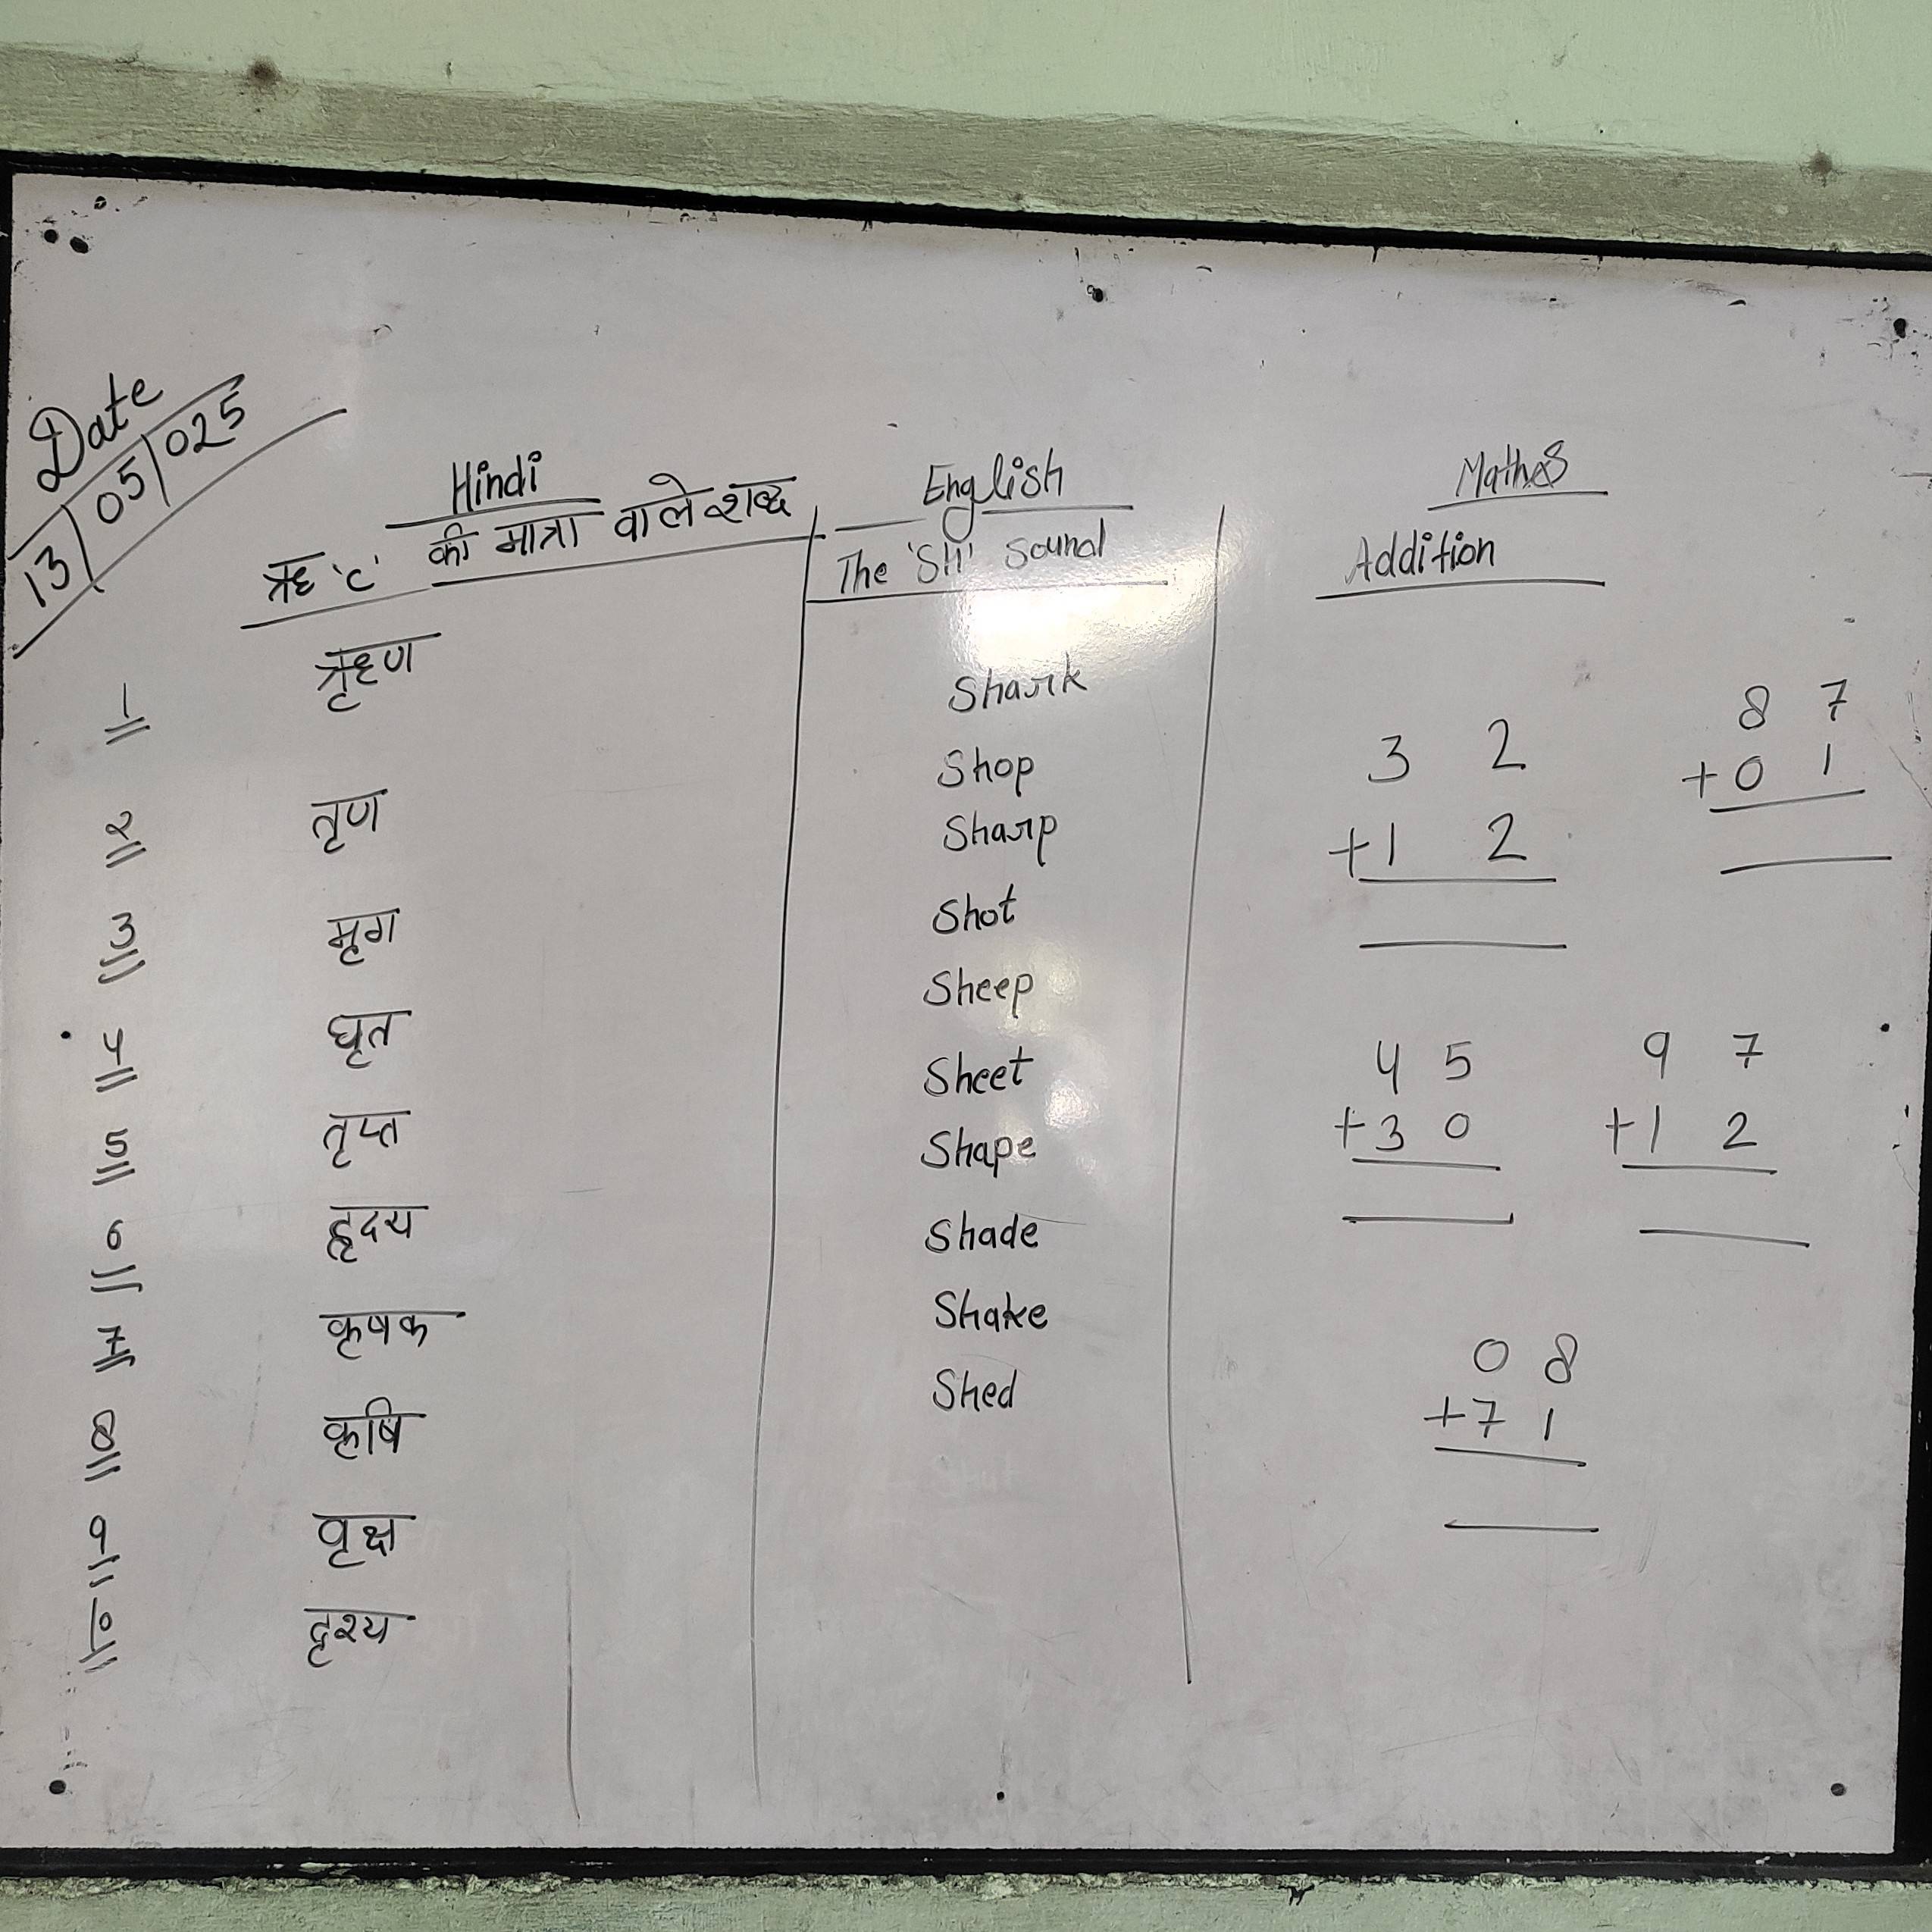 Date
13/05/025
Hindi
ऋ 'ृ' की मात्रा वाले शब्द
1 ऋण
2 तृण
3 मृग
4 घृत
5 तृप्त
6 हृदय
7 कृषक
8 कृषि
9 वृक्ष
10 दृश्य
English
The 'SH' Sound
Shark
Shop
Sharp
Shot
Sheep
Sheet
Shape
Shade
Shake
Shed
Maths
Addition
3 2
+1 2
8 7
+0 1
4 5
+3 0
9 7
+1 2
0 8
+7 1